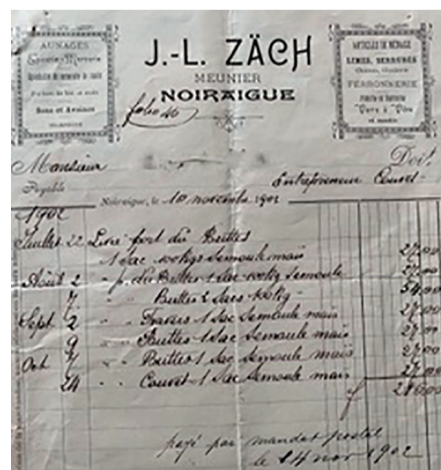 AUNAGES
Epicerie-Mercerie
Sons et Avoines
J.-L. ZÄCH
MEUNIER
NOIRAIGUE
folio 46
ARTICLES DE MÉNAGE
LIMES, SERRURES
FERRONNERIE
Verre à Vitre
Monsieur
Doit
Entrepreneur Couvet
Payable
Noiraigue, le 10 novembre 1902
1902
Juillet 22 Livré fort du Buttes
1 Sac 100 kgs Semoule maïs 27,00
Août 2 " p. du Buttes 1 Sac 100 kg Semoule 27,00
7 " Buttes 2 Sacs 100 kg " 54,00
Sept 2 " " Travers 1 Sac Semoule maïs 27,00
9 " " Buttes 1 Sac Semoule maïs 27,00
Oct 7 " " Buttes 1 Sac Semoule maïs 27,00
24 " " Couvet 1 Sac Semoule maïs 27,00
payé par mandat postal
le 14 nov 1902